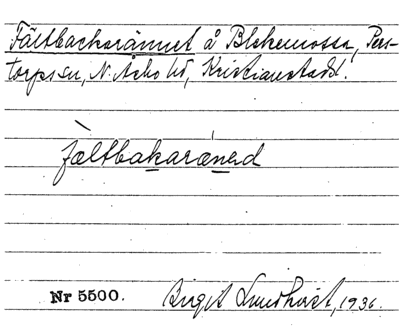 Fältbackarännet å Blekemossa, Pers-
torps sn, N. Åsbo hd, Kristianstads l.
fältbakaräned
Nr 5500.
Birgit Lundkvist, 1936.